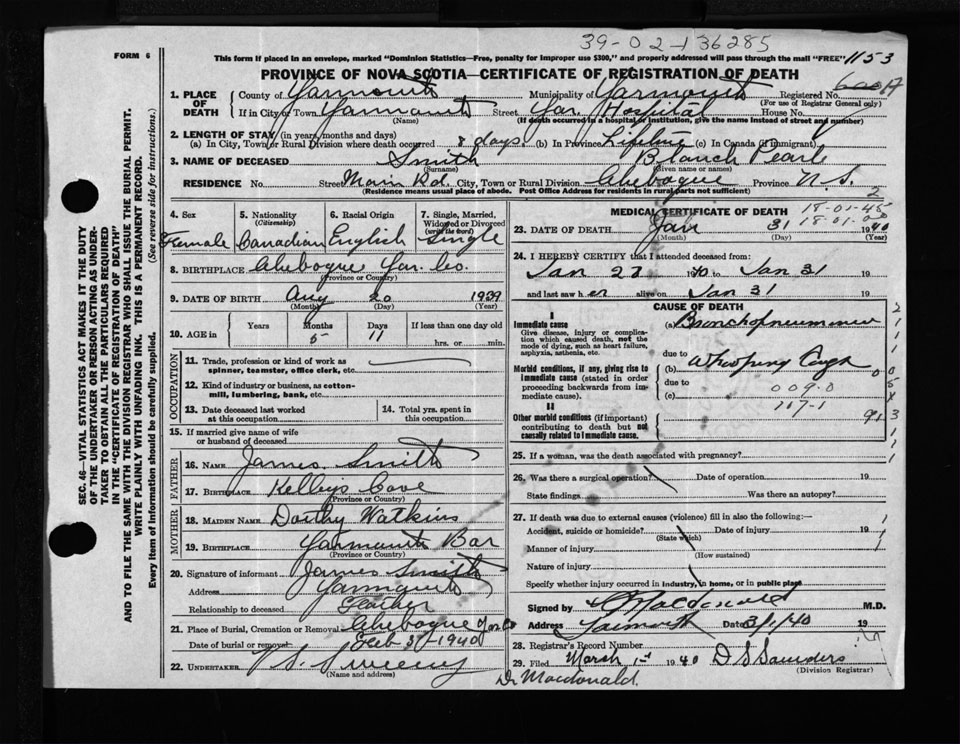 39-02-136285
FORM 6
This form if placed in an envelope, marked "Dominion Statistics—Free, penalty for improper use $300," and properly addressed will pass through the mail "FREE" 1153
PROVINCE OF NOVA SCOTIA—CERTIFICATE OF REGISTRATION OF DEATH
1. PLACE OF DEATH County of Yarmouth Municipality of Yarmouth Registered No.
(For use of Registrar General only)
If in City or Town Yarmouth Street Yar. Hospital House No.
(Name) (If death occurred in a hospital or institution, give the name instead of street and number)
2. LENGTH OF STAY (in years, months and days)
(a) In City, Town or Rural Division where death occurred 8 days. (b) In Province Lifetime (c) In Canada (if immigrant)
3. NAME OF DECEASED Smith Blanch Pearle
(Surname) (Given name or names)
RESIDENCE No. Street Main Rd. City, Town or Rural Division Chebogue Province N.S.
(Residence means usual place of abode. Post Office Address for residents in rural parts not sufficient)
2
4. Sex
Female
5. Nationality
(Citizenship)
Canadian
6. Racial Origin
English
7. Single, Married, Widowed or Divorced
(write the word)
Single
8. BIRTHPLACE Chebogue Yar. Co.
(Province or Country)
9. DATE OF BIRTH Aug 20 1939
(Month) (Day) (Year)
10. AGE in Years Months Days If less than one day old
5 11 hrs. or min.
OCCUPATION
11. Trade, profession or kind of work as spinner, teamster, office clerk, etc.
12. Kind of industry or business, as cotton-mill, lumbering, bank, etc.
13. Date deceased last worked at this occupation
14. Total yrs. spent in this occupation
15. If married give name of wife or husband of deceased
FATHER
16. NAME James Smith
17. BIRTHPLACE Kelleys Cove
(Province or Country)
MOTHER
18. MAIDEN NAME Dorthy Watkins
19. BIRTHPLACE Yarmouth Bar
(Province or Country)
20. Signature of informant James Smith
Address Yarmouth
Relationship to deceased Father
21. Place of Burial, Cremation or Removal Chebogue Yar Co
Date of burial or removal Feb 3 1940
22. UNDERTAKER V. S. Sweeny
(Name and address)
MEDICAL CERTIFICATE OF DEATH
18-01-45
18-01-00
23. DATE OF DEATH Jan 31 1940
(Month) (Day) (Year)
24. I HEREBY CERTIFY that I attended deceased from:
Jan 27 1940 to Jan 31 19
and last saw her alive on Jan 31 19
CAUSE OF DEATH
I
Immediate cause
Give disease, injury or complication which caused death, not the mode of dying, such as heart failure, asphyxia, asthenia, etc.
(a) Bronchopneumonia
due to
Morbid conditions, if any, giving rise to immediate cause (stated in order proceeding backwards from immediate cause).
(b) Whooping Cough
due to
(c) 009-0
107-1
II
Other morbid conditions (if important) contributing to death but not causally related to immediate cause.
25. If a woman, was the death associated with pregnancy?
26. Was there a surgical operation? Date of operation 19
State findings Was there an autopsy?
27. If death was due to external causes (violence) fill in also the following:—
Accident, suicide or homicide? Date of injury 19
(State which)
Manner of injury
(How sustained)
Nature of injury
Specify whether injury occurred in industry, in home, or in public place
Signed by Macdonald M.D.
Address Yarmouth Date 3/1/40 19
28. Registrar's Record Number
29. Filed March 1st 1940 D S Saunders
(Division Registrar)
Dr Macdonald.
SEC. 46—VITAL STATISTICS ACT MAKES IT THE DUTY OF THE UNDERTAKER OR PERSON ACTING AS UNDERTAKER TO OBTAIN ALL THE PARTICULARS REQUIRED IN THE "CERTIFICATE OF REGISTRATION OF DEATH" AND TO FILE THE SAME WITH THE DIVISION REGISTRAR WHO SHALL ISSUE THE BURIAL PERMIT.
WRITE PLAINLY WITH UNFADING INK. THIS IS A PERMANENT RECORD.
Every item of information should be carefully supplied. (See reverse side for instructions.)